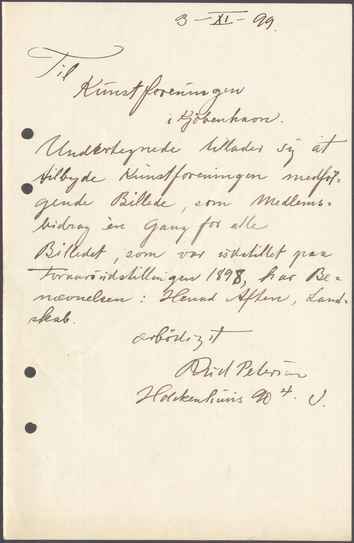 3-XI-99.
Til
Kunstforeningen
i Kjöbenhavn.
Undertegnede tillader sig at
tilbyde Kunstforeningen medföl-
gende Billede, som Medlems-
bidrag een Gang for alle
Billedet, som var udstillet paa
Foraarsudstillingen 1898, har Be-
nævnelsen: Henad Aften, Land-
skab.
ærbödigst
Petersen
Holckenhuus 4. V.